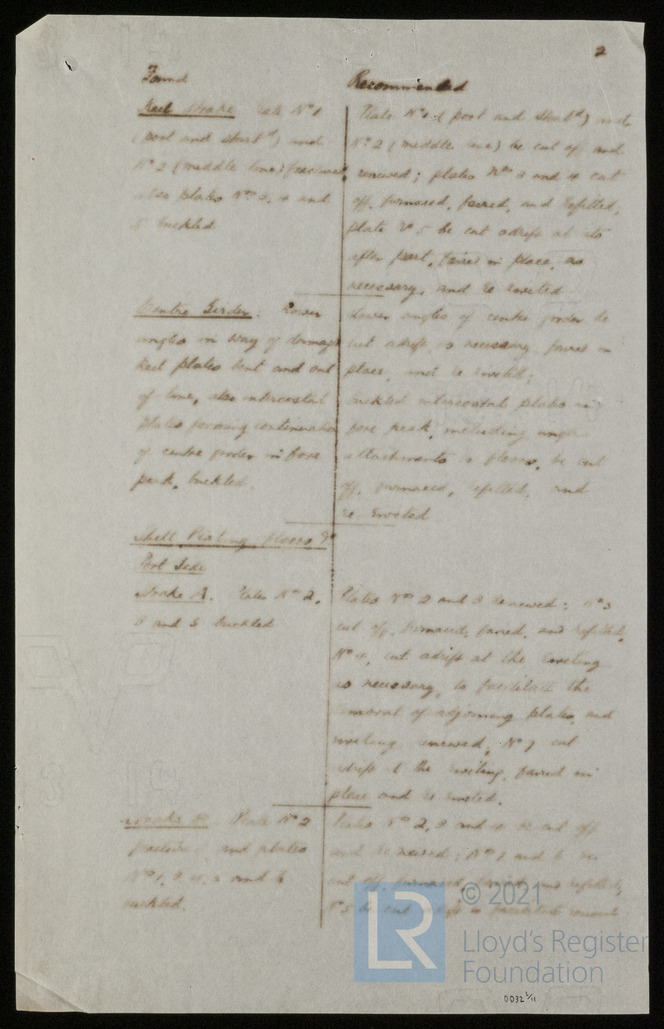 2
Found
Recommended
Keel Strake Plate Nº 1
(port and starbd) and
Nº 2 (middle line) fractured
also plates Nos 3, 4 and
5 buckled
Plates Nº 1 (port and starbd) and
Nº 2 (middle line) be cut off and
renewed; plates Nos 3 and 4 cut
off, furnaced, faired, and refitted,
plate Nº 5 be cut adrift at its
after part, faired in place, as
necessary, and re riveted
Centre Girder. Lower
angles in way of damaged
keel plates bent and out
of line, also intercostal
plates forming continuation
of centre girder in fore
peak, buckled.
Lower angles of centre girder be
cut adrift as necessary, faired in
place, and re riveted;
buckled intercostal plates in
fore peak, including angle
attachments to floors, be cut
off, furnaced, refitted, and
re riveted
Shell Plating, floors &c
Port Side
Strake A. Plates Nº 2,
3 and 5 buckled
Plates Nos 2 and 3 renewed; Nº 3
cut off, furnaced, faired, and refitted,
Nº 4, cut adrift at the riveting
as necessary, to facilitate the
removal of adjoining plates, and
riveting renewed, Nº 7 cut
adrift at the riveting, faired in
place and re riveted.
Strake B. Plate Nº 2
fractured and plates
Nº 1, 3, 4, 5 and 6
buckled.
Plates Nos 2, 3 and 4 be cut off
and renewed; Nº 1 and 6 be
cut off, furnaced, faired, and refitted,
Nº 5 be cut adrift to facilitate removal
LR
© 2021
Lloyd's Register
Foundation
0032